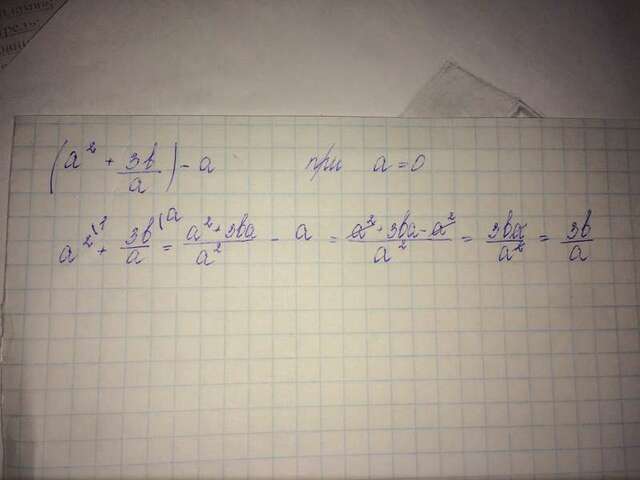 (a² + 3b/a) - a при a = 0
a²⁽¹ + 3b/a⁽ᵃ = a² + 3ba/a² - a = a² + 3ba - a²/a² = 3ba/a² = 3b/a